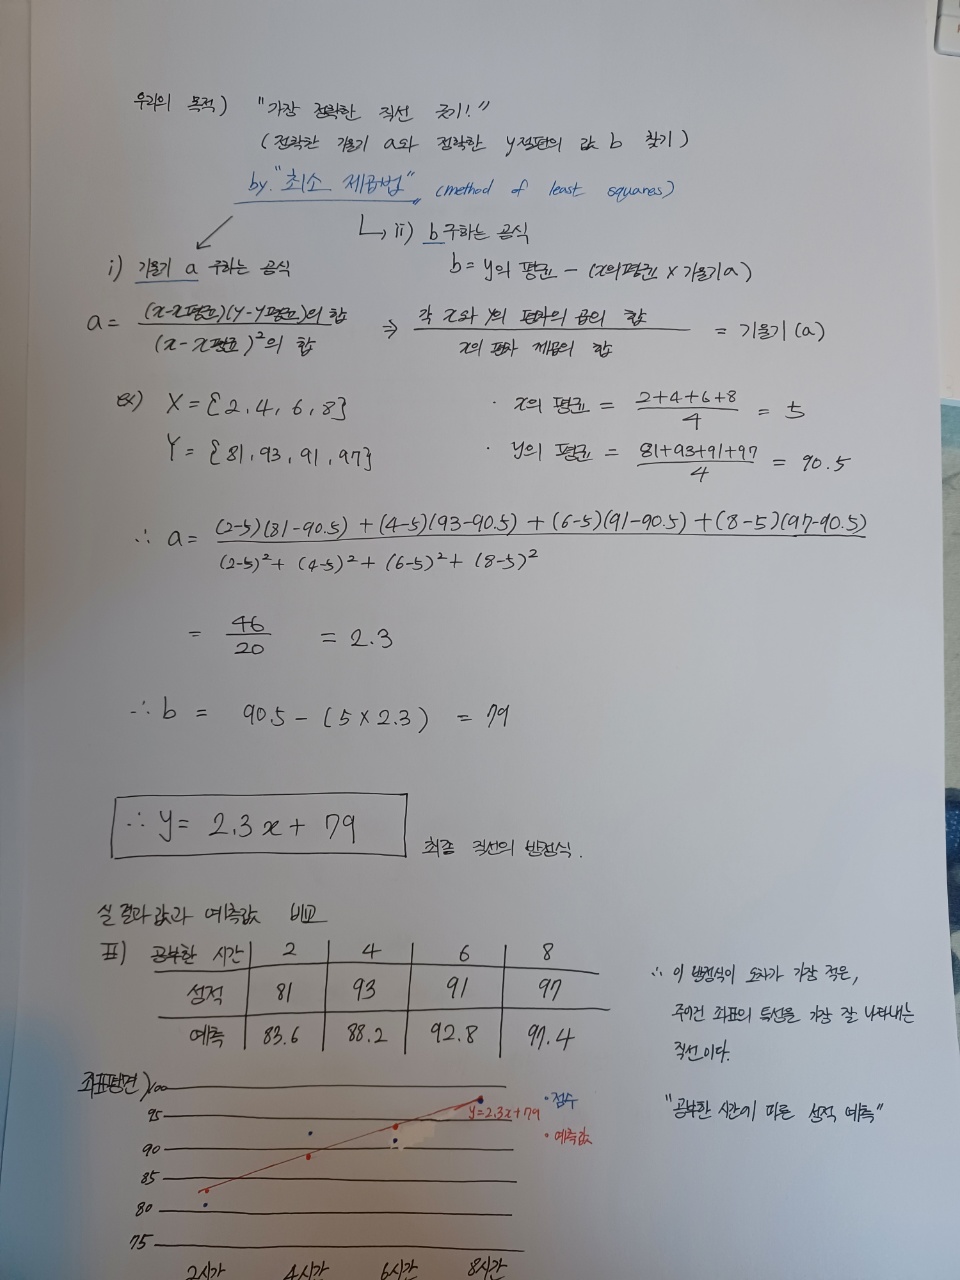 우리의 목적) "가장 정확한 직선 긋기!"
(정확한 기울기 a와 정확한 y절편의 값 b 찾기)
by. "최소 제곱법" (method of least squares)
ii) b구하는 공식
i) 기울기 a 구하는 공식
b = y의 평균 - (x의평균 × 기울기a)
a = (x-x평균)(y-y평균)의 합 / (x-x평균)²의 합 ⇒ 각 x와 y의 편차의 곱의 합 / x의 편차 제곱의 합 = 기울기(a)
ex) X = {2, 4, 6, 8} · x의 평균 = 2+4+6+8 / 4 = 5
Y = {81, 93, 91, 97} · y의 평균 = 81+93+91+97 / 4 = 90.5
∴ a = (2-5)(81-90.5) + (4-5)(93-90.5) + (6-5)(91-90.5) + (8-5)(97-90.5) / (2-5)² + (4-5)² + (6-5)² + (8-5)²
= 46 / 20 = 2.3
∴ b = 90.5 - (5 × 2.3) = 79
∴ y = 2.3x + 79 최종 직선의 방정식.
실 결과값과 예측값 비교
표) 공부한 시간 2 4 6 8
성적 81 93 91 97
예측 83.6 88.2 92.8 97.4
∴ 이 방정식이 오차가 가장 적은,
주어진 좌표의 특성을 가장 잘 나타내는
직선이다.
"공부한 시간에 따른 성적 예측"
좌표평면) 100
95
90
85
80
75
y=2.3x+79
· 점수
· 예측값
2시간 4시간 6시간 8시간